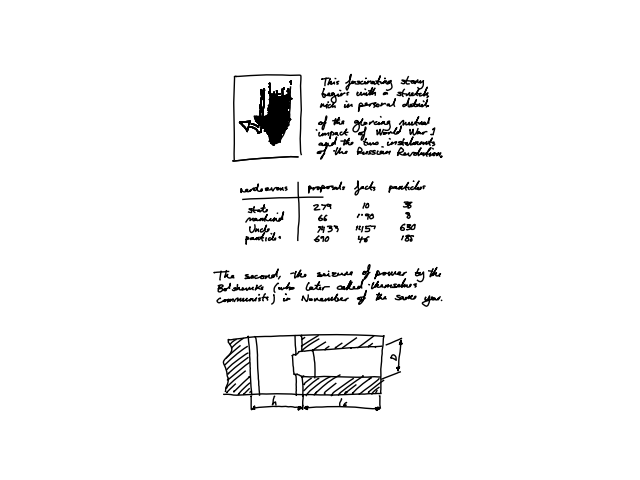 This fascinating story
begins with a stretch,
rich in personal detail
of the glancing mutual
impact of World War I
and the two instalments
of the Russian Revolution.
proposals facts particles
state 279 10 38
mankind 66 8
Uncle 1457 630
particles 690 46 186
The second, the seizure of power by the
Bolsheviks (who later called themselves
communists) in November of the same year.
D
h